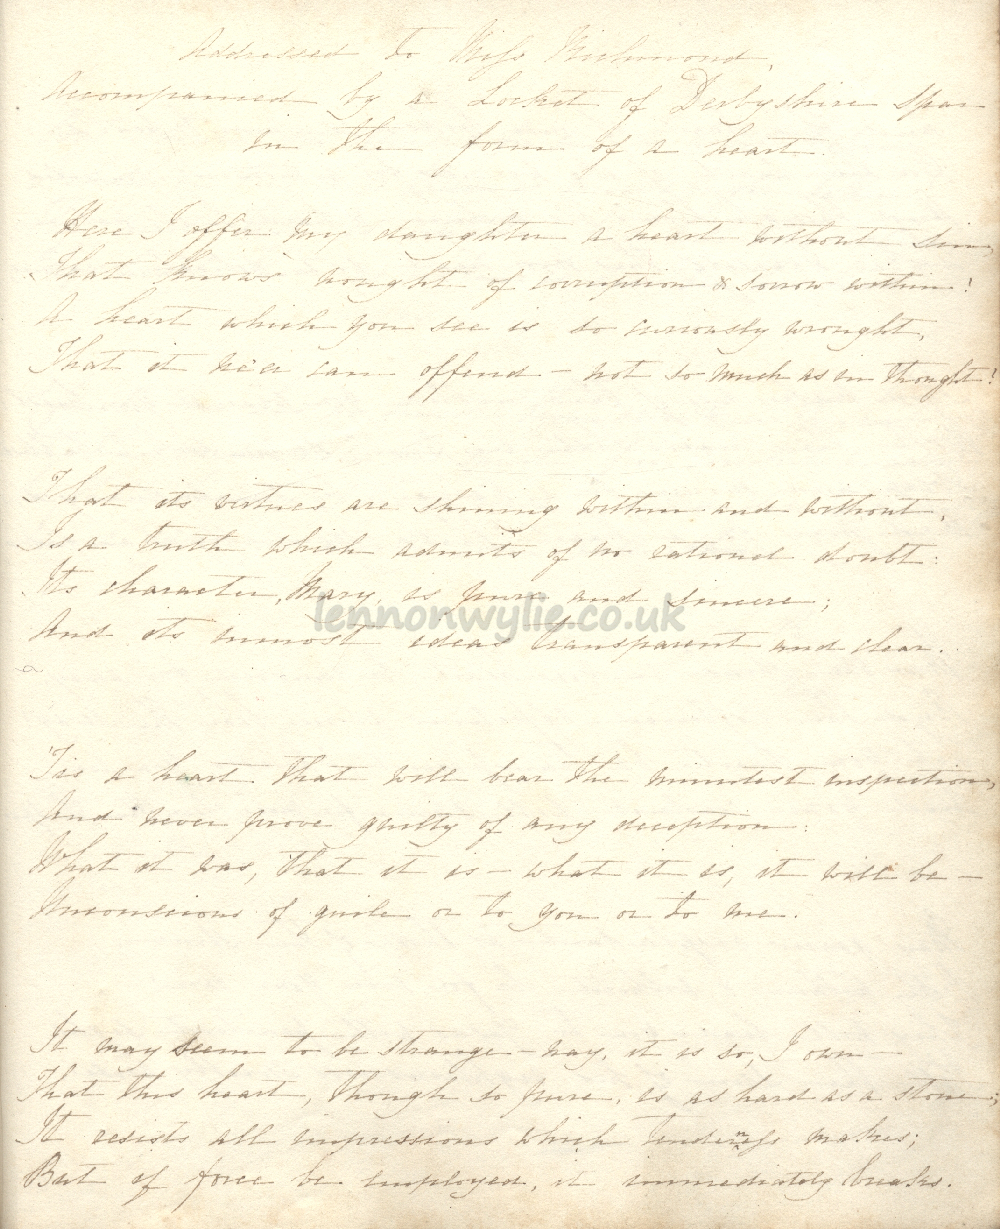 Addressed to Miss Richmond,
Accompanied by a Locket of Derbyshire Spar
in the form of a heart.
Here I offer my daughter a heart without sin,
That knows nought of corruption & sorrow within!
A heart which you see is so curiously wrought,
That it ne'er can offend – not so much as in thought!
That its virtues are shining within and without,
Is a truth which admits of no rational doubt:
Its character, Mary, is pure and sincere;
lennonwylie.co.uk
And its inmost ideas transparent and clear.
a
'Tis a heart that will bear the minutest inspection,
And never prove guilty of any deception:
What it was, that it is – what it is, it will be –
Unconscious of guile or to you or to me.
It may seem to be strange – nay, it is so, I own –
That this heart, though so pure, is as hard as a stone;
It resists all impressions which tenderness makes;
But if force be employed, it immediately breaks.